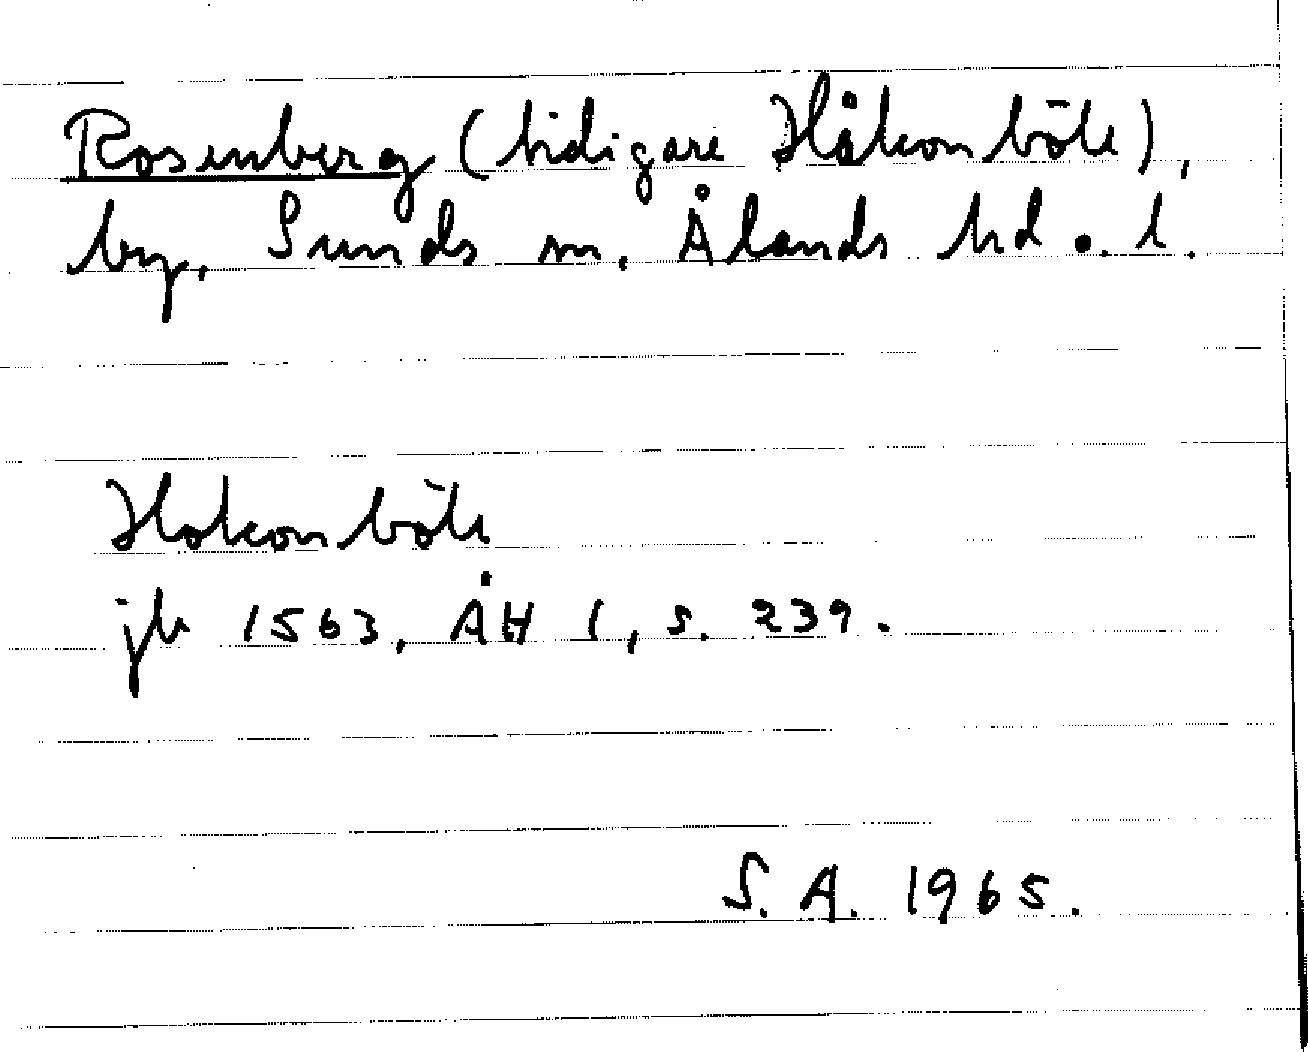 Rosenberg (tidigare Håkonböle),
by, Sunds sn, Ålands hd o. l.
Hokonböle
jb 1563, ÅH 1, s. 239.
S. A. 1965.